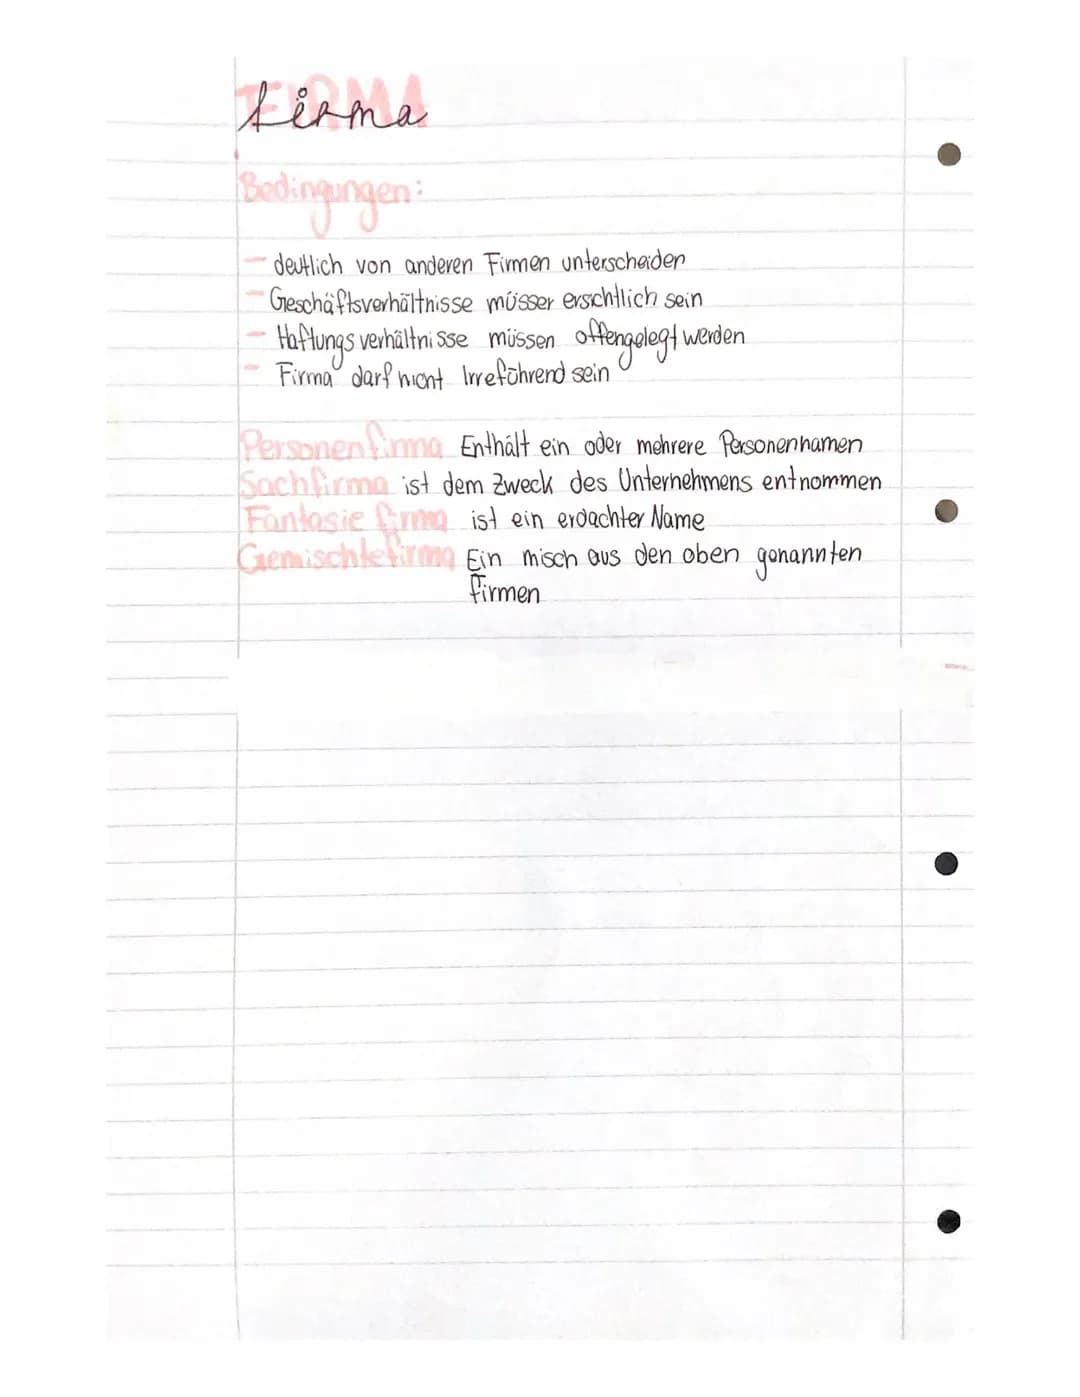 FIRMA
Firma
Bedingungen:
- deutlich von anderen Firmen unterscheiden
- Geschäftsverhältnisse müssen ersichtlich sein
- Haftungsverhältnisse müssen offengelegt werden
- Firma darf nicht Irreführend sein
Personenfirma Enthält ein oder mehrere Personennamen
Sachfirma ist dem Zweck des Unternehmens entnommen
Fantasie firma ist ein erdachter Name
Gemischtefirma Ein misch aus den oben genannten
firmen